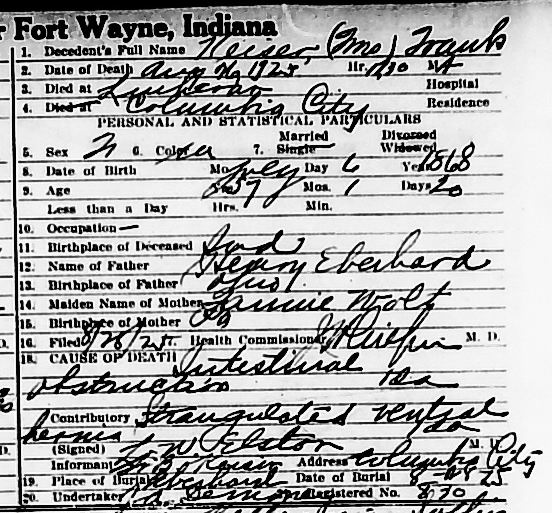 Fort Wayne, Indiana
1. Decedent's Full Name Keiser, (Mrs) Frank
2. Date of Death Aug 26 1925 Hr. M A
3. Died at Lutheran Hospital
4. Died at Columbia City Residence
PERSONAL AND STATISTICAL PARTICULARS
Married Divorced
5. Sex 6. Color 7. Single Widowed
8. Date of Birth Mo. July Day 6 Year 1868
9. Age 57 Mos. 1 Days 20
Less than a Day Hrs. Min.
10. Occupation —
11. Birthplace of Deceased Ind
12. Name of Father Henry Eberhard
13. Birthplace of Father Ohio
14. Maiden Name of Mother Fannie Wolf
15. Birthplace of Mother
16. Filed 8/28/25. Health Commissioner M. D.
18. CAUSE OF DEATH Intestinal
obstruction
Contributory Strangulated ventral
hernia
(Signed) Elston M. D.
Informant Address Columbia City
19. Place of Burial Eberhard Date of Burial 8-28 25
20. Undertaker Registered No. 870